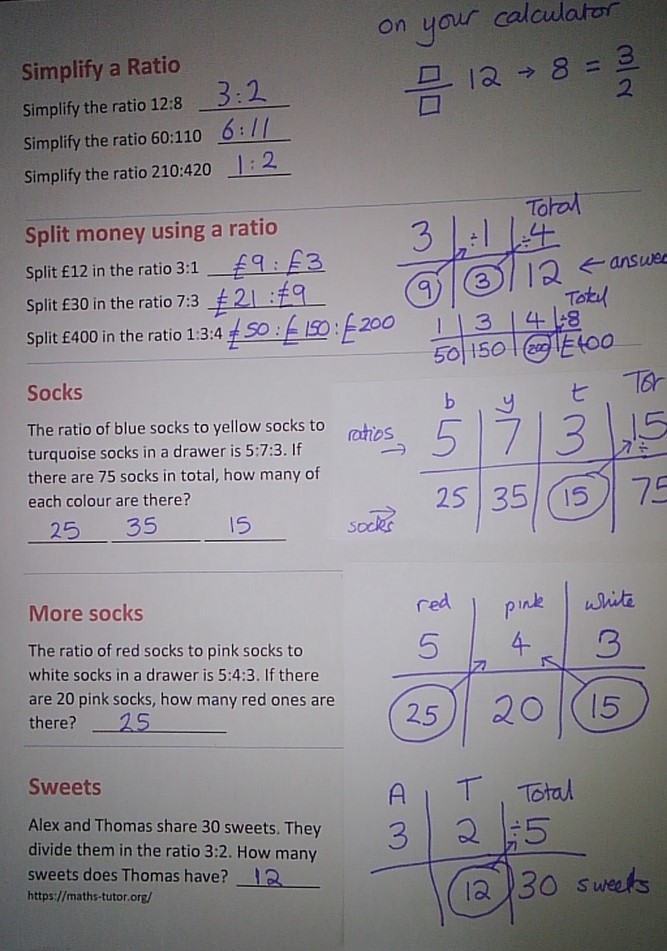 on your calculator
Simplify a Ratio
□/□ 12 → 8 = 3/2
Simplify the ratio 12:8 3:2
Simplify the ratio 60:110 6:11
Simplify the ratio 210:420 1:2
Split money using a ratio
Split £12 in the ratio 3:1 £9 : £3
Split £30 in the ratio 7:3 £21 : £9
Split £400 in the ratio 1:3:4 £50 : £150 : £200
Total
3 ÷1 ÷4
9 3 12 ← answer
Total
1 3 4 ÷8
50 150 200 £400
Socks
The ratio of blue socks to yellow socks to
turquoise socks in a drawer is 5:7:3. If
there are 75 socks in total, how many of
each colour are there?
25 35 15
b y t Tot
ratios → 5 7 3 15 ÷
socks → 25 35 15 75
More socks
The ratio of red socks to pink socks to
white socks in a drawer is 5:4:3. If there
are 20 pink socks, how many red ones are
there? 25
red pink white
5 4 3
25 20 15
Sweets
Alex and Thomas share 30 sweets. They
divide them in the ratio 3:2. How many
sweets does Thomas have? 12
https://maths-tutor.org/
A T Total
3 2 ÷5
12 30 sweets